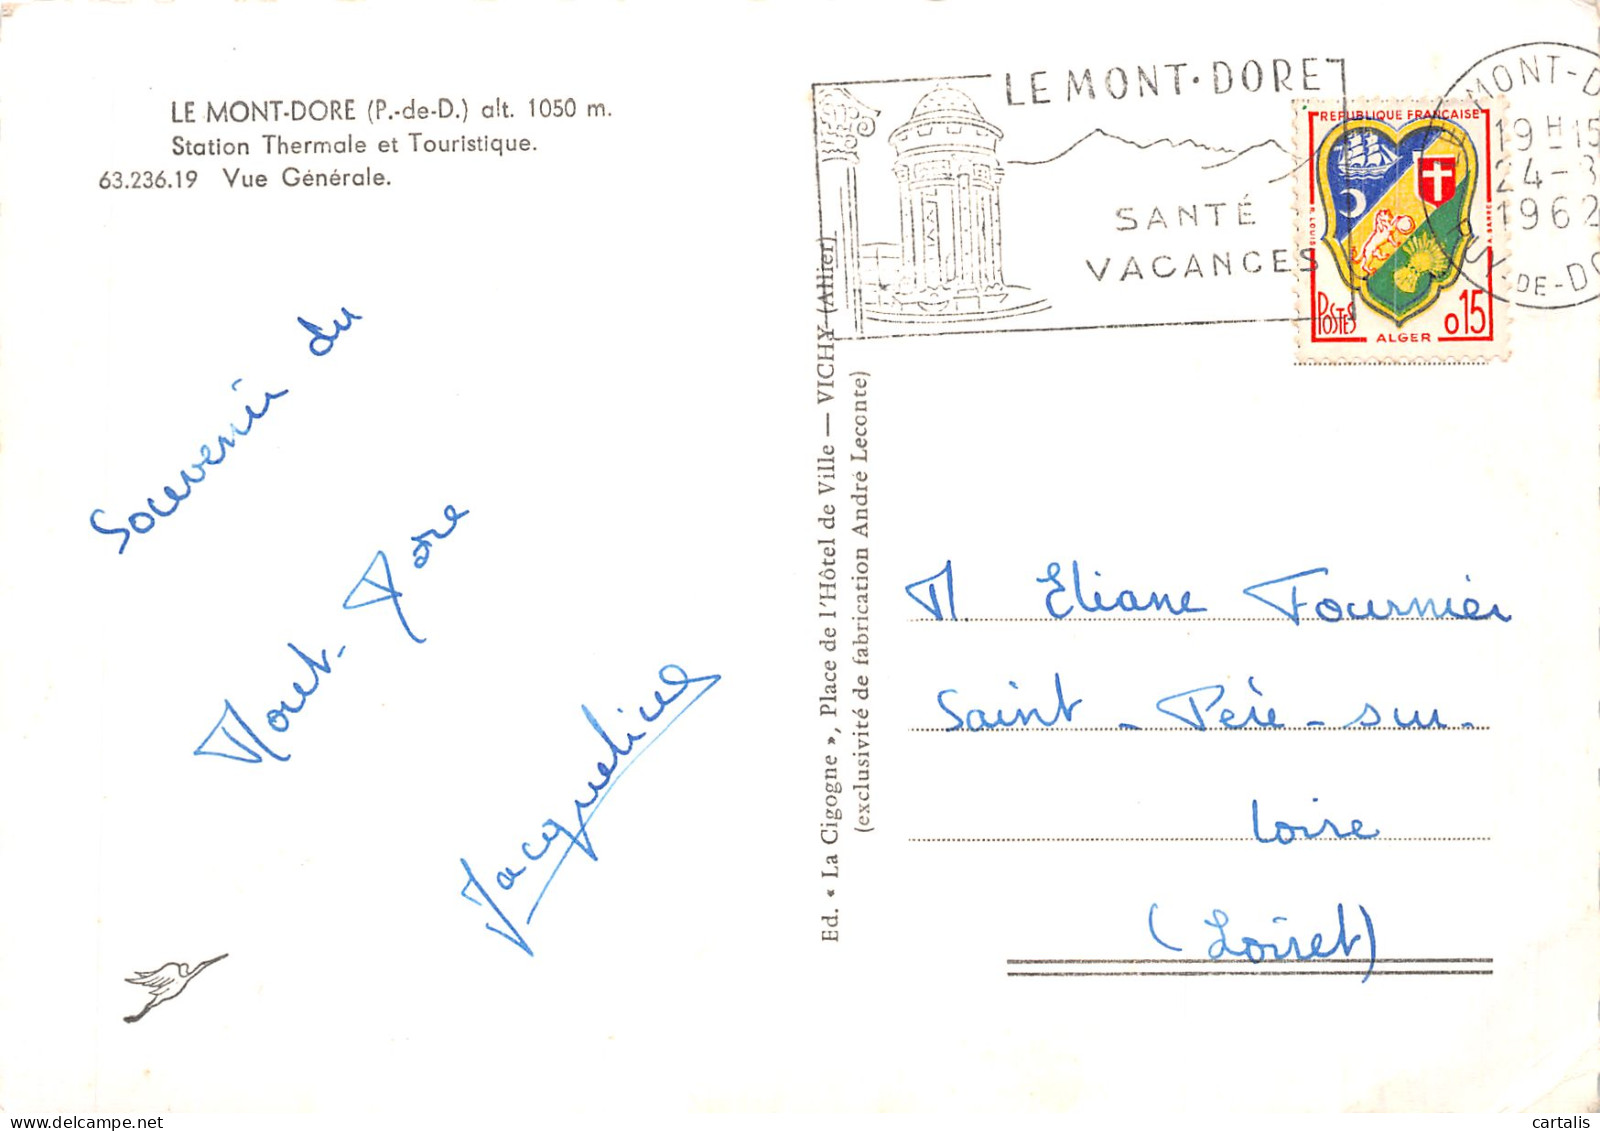 LE MONT-DORE (P.-de-D.) alt. 1050 m.
Station Thermale et Touristique.
63.236.19 Vue Générale.
Souvenir du
Mont-Dore
Jacqueline
Ed. « La Cigogne », Place de l'Hôtel de Ville — VICHY (Allier)
(exclusivité de fabrication André Leconte)
LE MONT·DORE
SANTÉ
VACANCES
MONT-D
19 H 15
24-3
1962
PUY-DE-DO
REPUBLIQUE FRANÇAISE
POSTES
0,15
ALGER
M. Eliane Fournier
Saint-Père-sur-
Loire
(Loiret)
cartalis